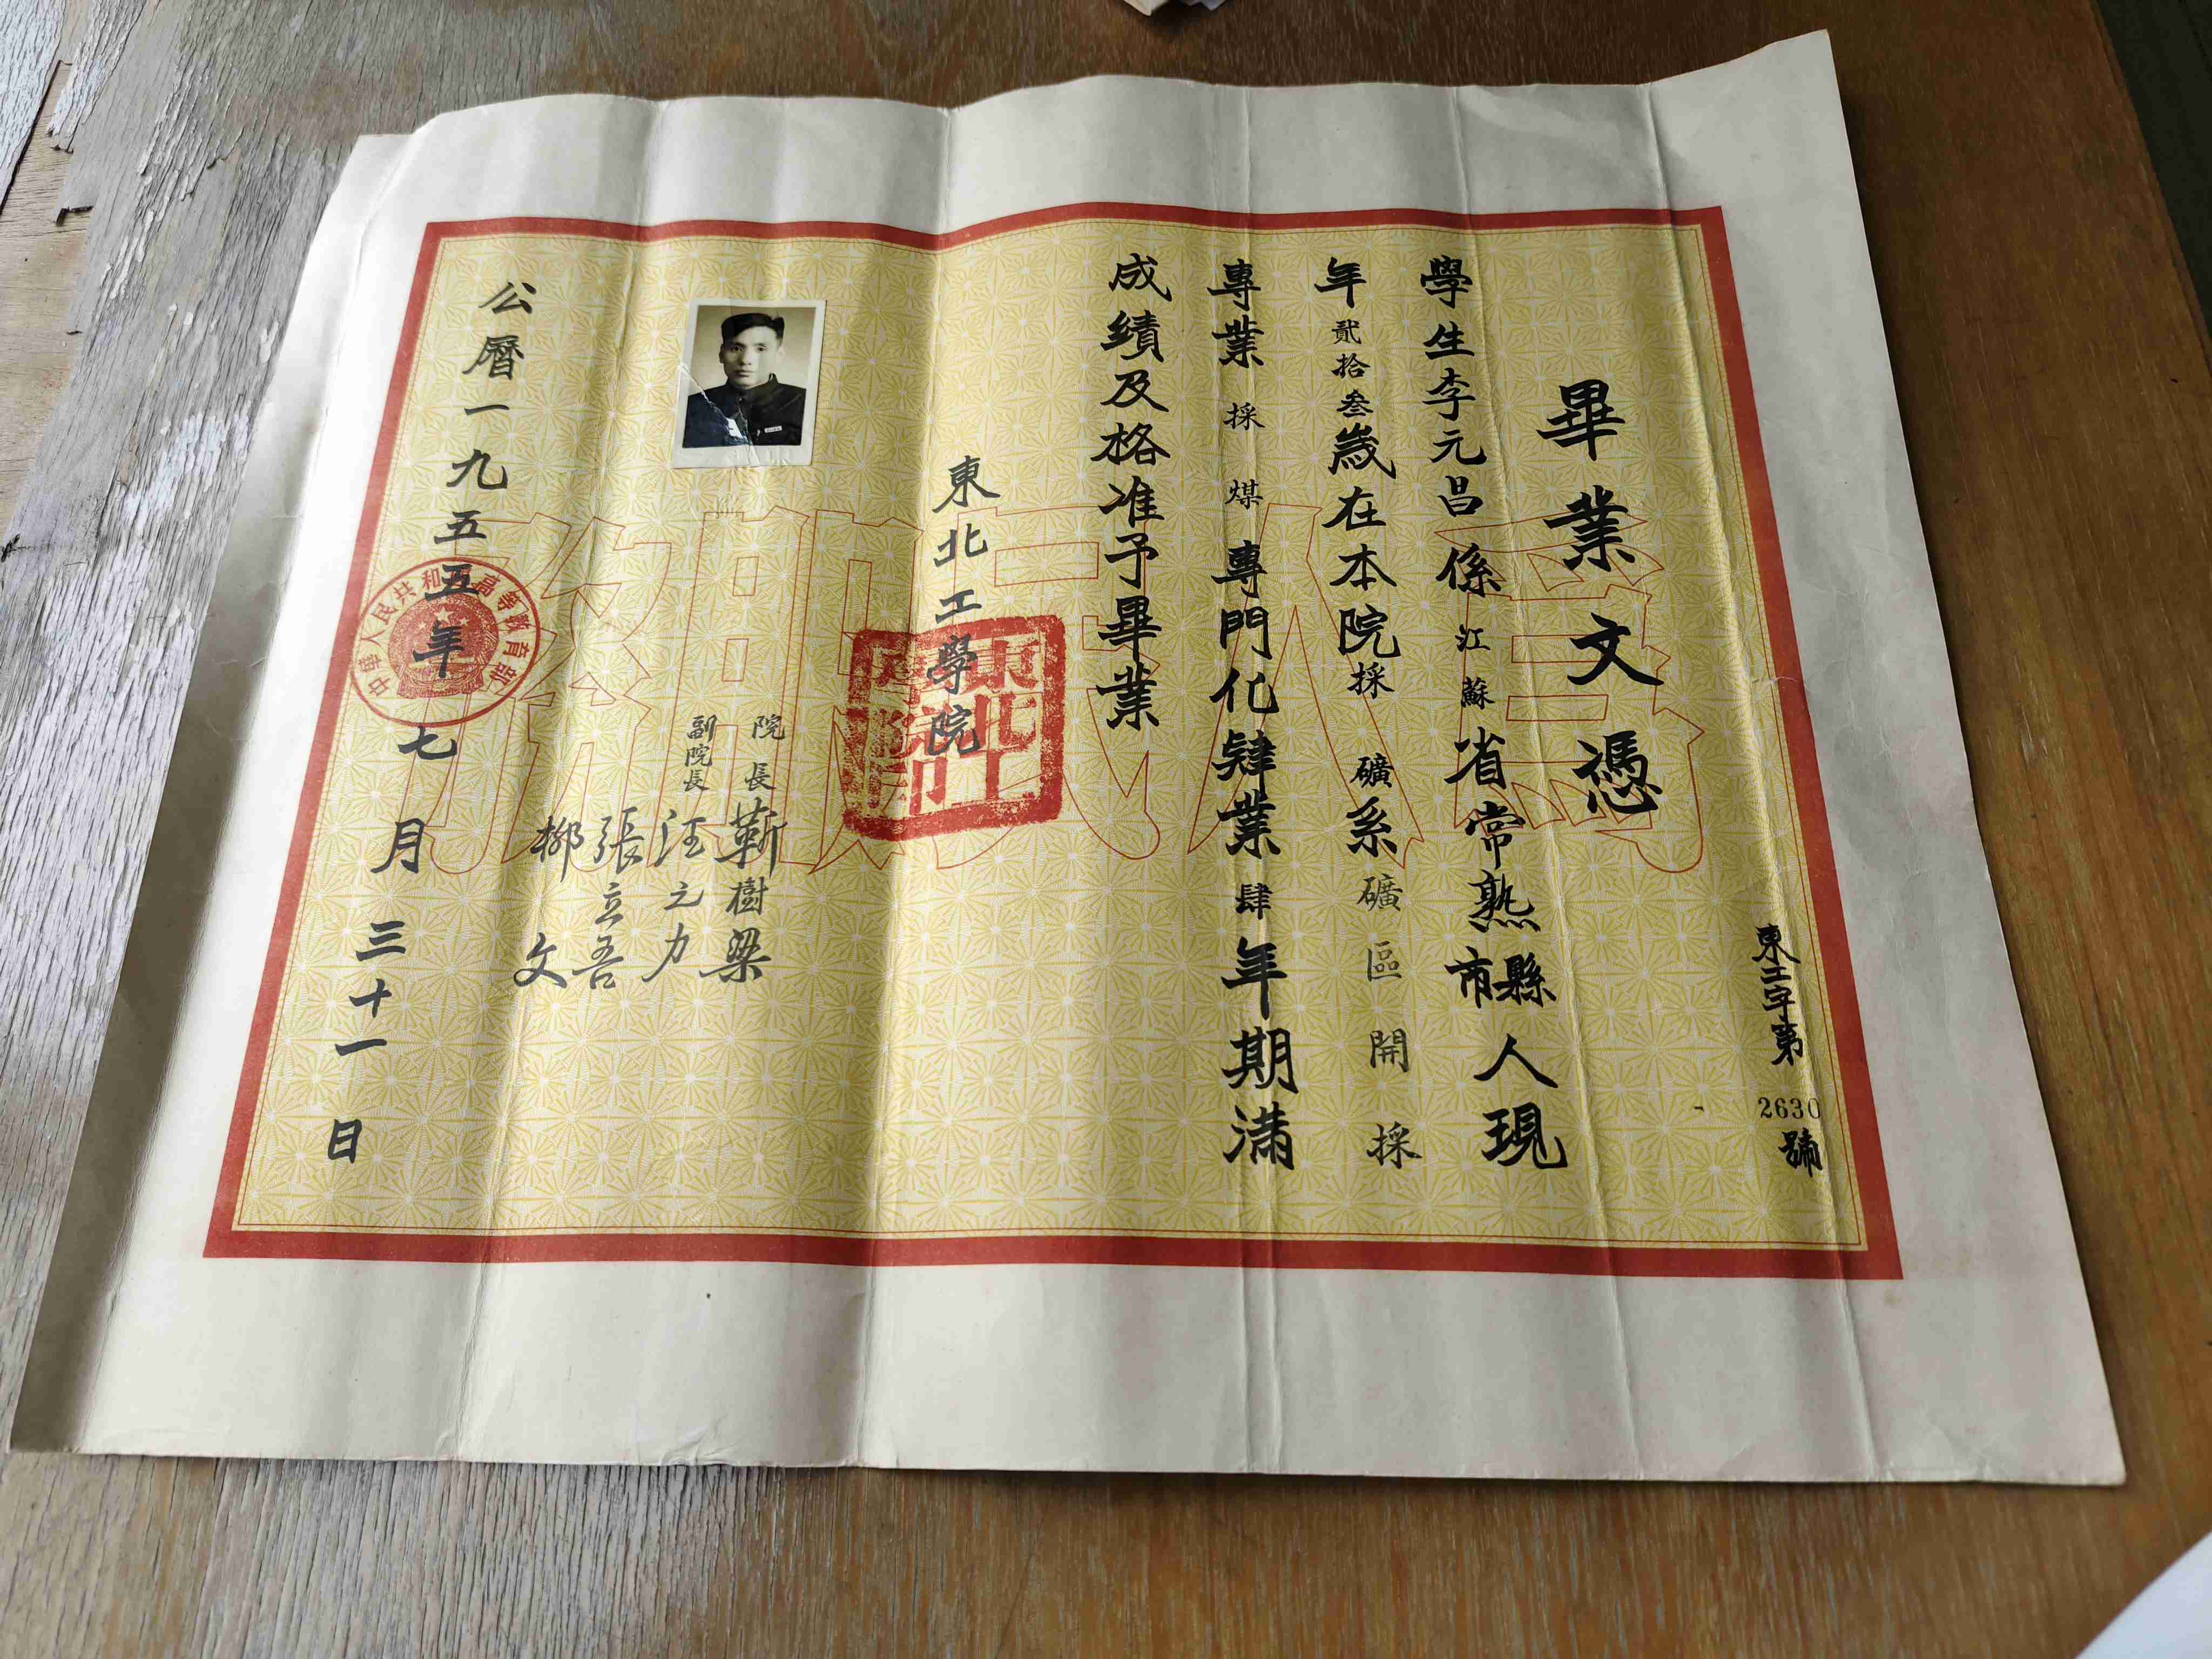 東工字第2630號
畢業文憑
學生李元昌係江蘇省常熟縣市人現
年貳拾叁歲在本院採礦系礦區開採
專業採煤專門化肄業肆年期滿
成績及格准予畢業
東北工學院
院長靳樹梁
副院長汪之力
張立吾
柳文
公曆一九五五年七月三十一日
中華人民共和國高等教育部
為人民服務